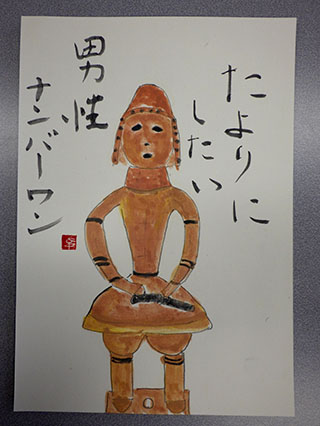 たよりに
したい
男性
ナンバーワン